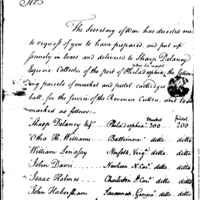 Sir,
The Secretary of War has directed me
to request of you to have prepared, and put up
securely in boxes, and delivered to Sharp Delany
Esquire Collector of the port of Philadelphia, the follow-
ing parcels of musket and pistol cartridges
ball, for the service of the Revenue Cutters, and
marked as follows.
Musket Pistol
Sharp Delany Esqr. Philadelphia 300 200
Otho H. Williams Baltimore ditto ditto
William Lindsay Norfolk, Virga. ditto ditto
John Davis Newbern N. Cara. ditto ditto
Isaac Holmes Charleston S. Cara. ditto ditto
John Habersham Savannah, Georgia ditto ditto